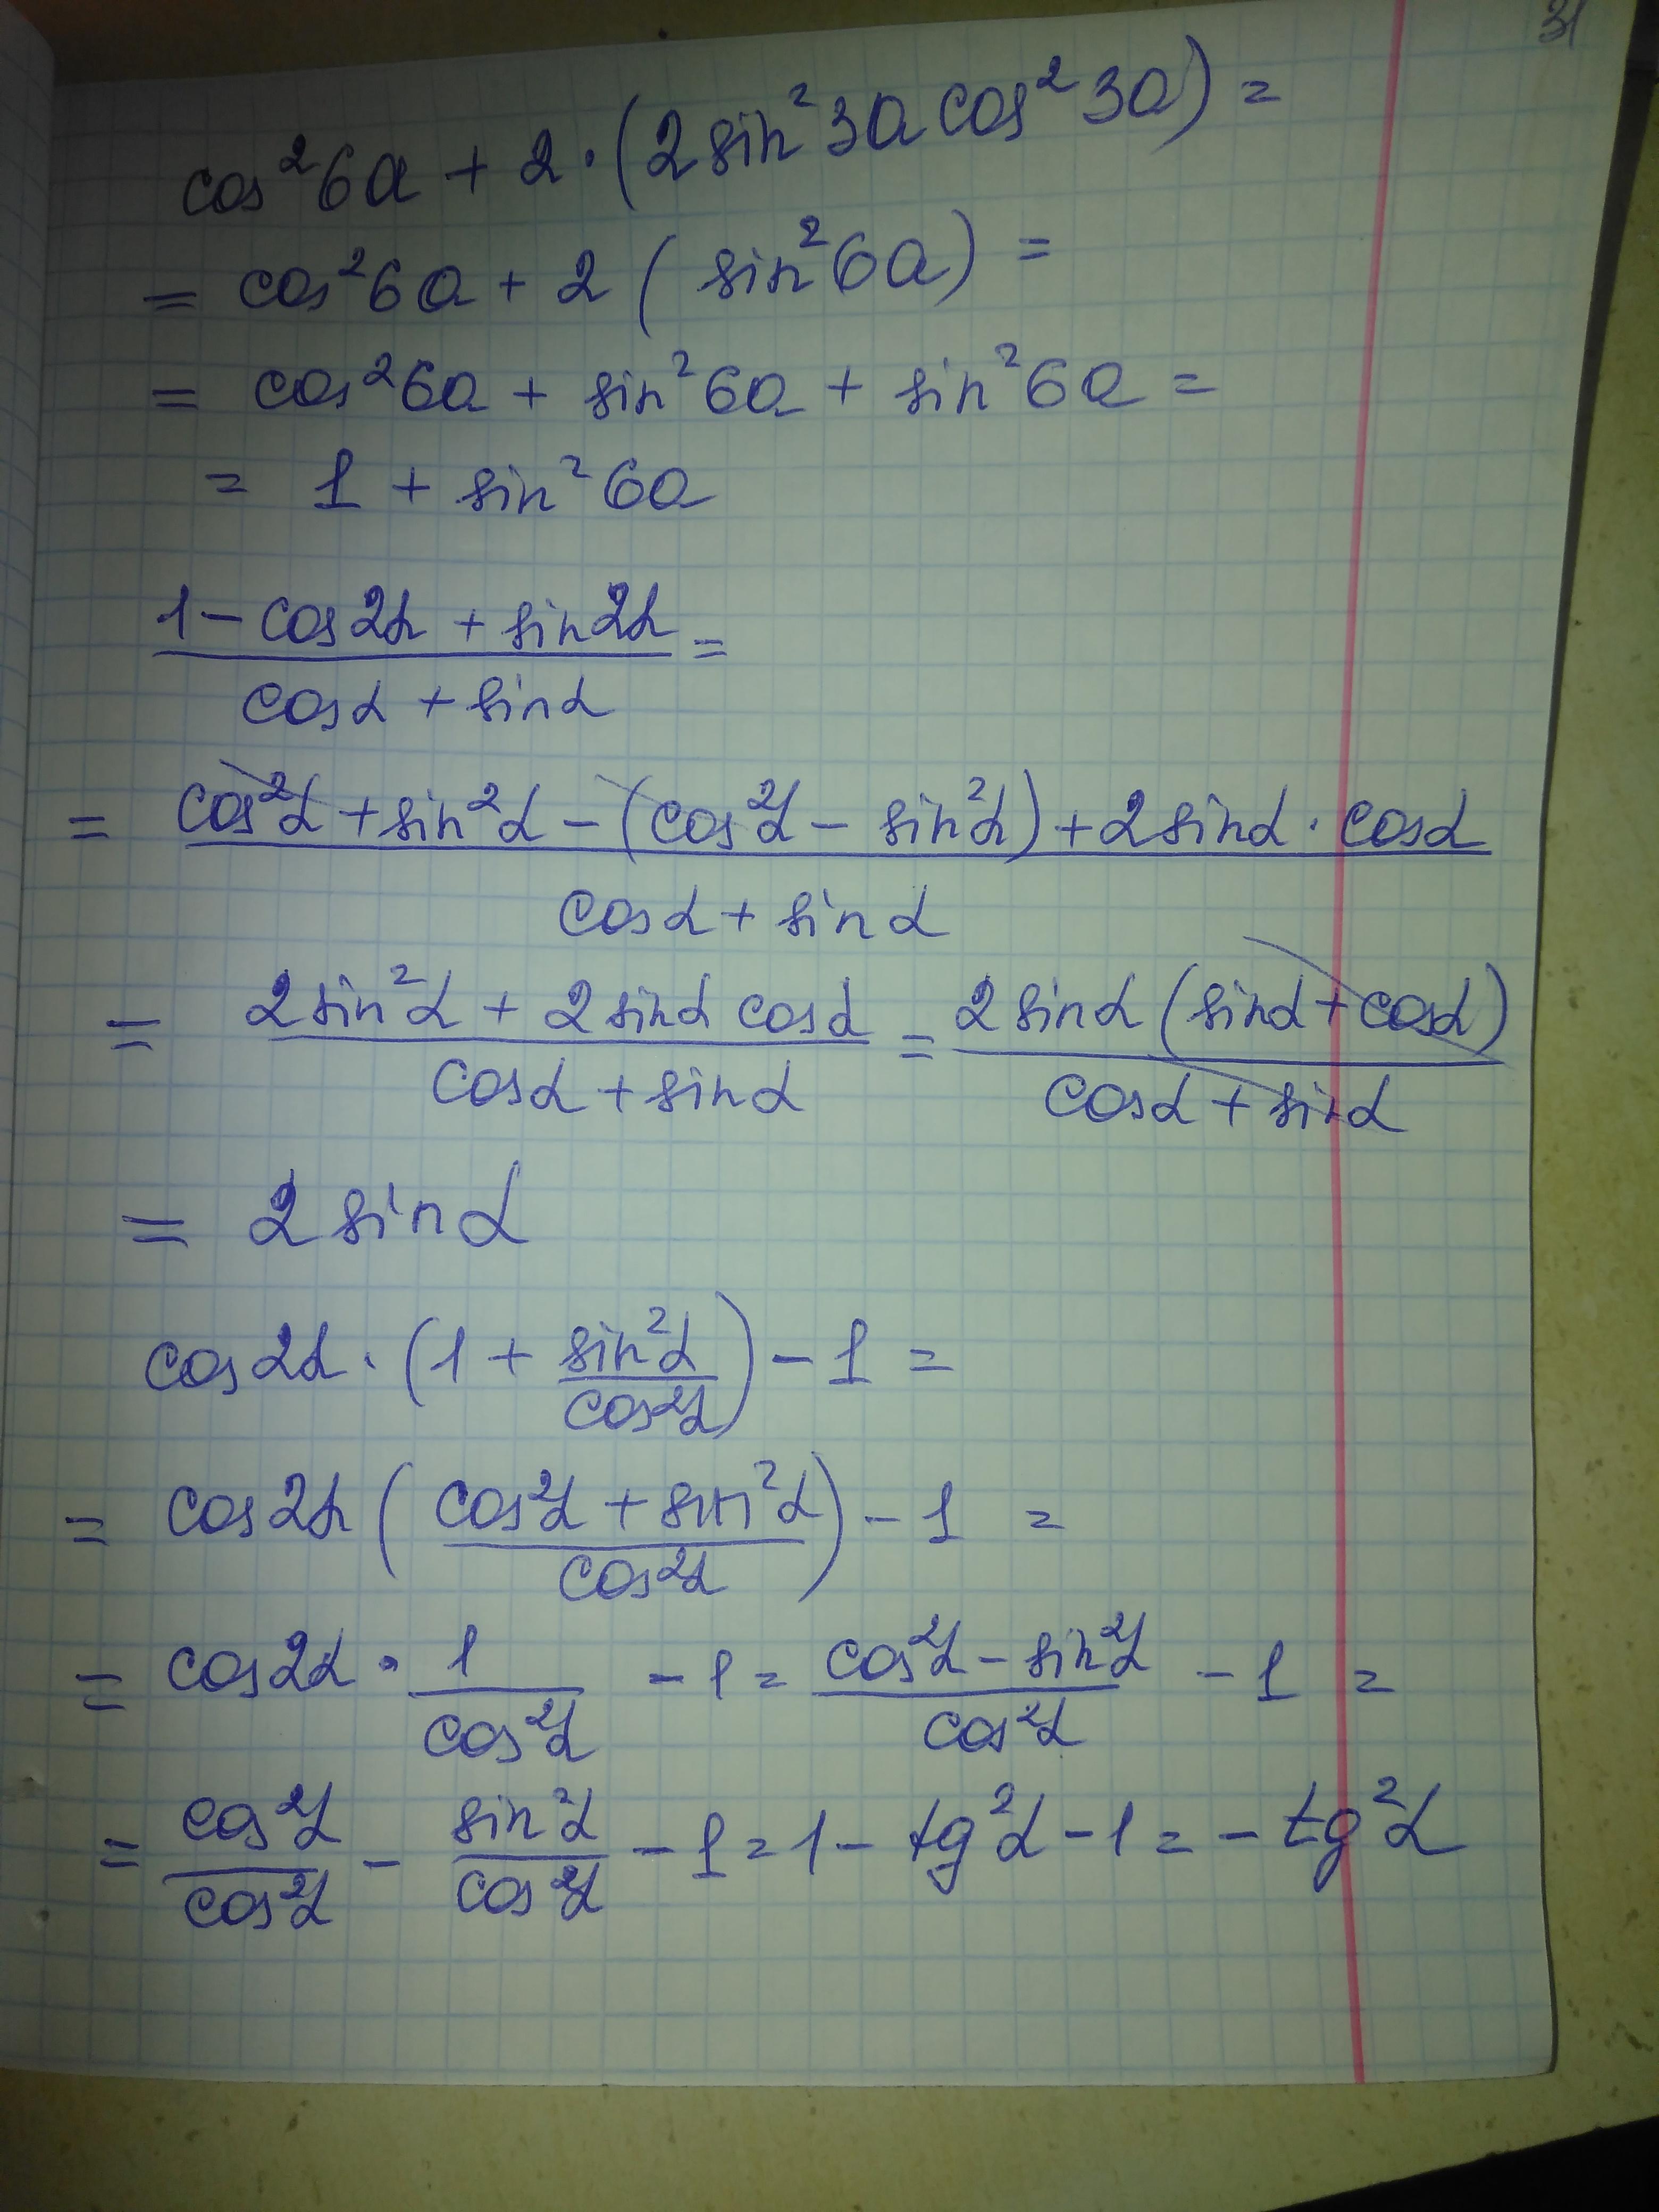 31
cos²6a + 2·(2sin²3a cos²3a) =
= cos²6a + 2 ( sin²6a) =
= cos²6a + sin²6a + sin²6a =
= 1 + sin²6a
1 - cos2α + sin2α =
cosα + sinα
= cos²α + sin²α - (cos²α - sin²α) + 2sinα · cosα
cosα + sinα
= 2sin²α + 2sinα cosα = 2sinα (sinα + cosα)
cosα + sinα cosα + sinα
= 2 sinα
cos2α · (1 + sin²α/cos²α) - 1 =
= cos2α (cos²α + sin²α/cos²α) - 1 =
= cos2α · 1/cos²α - 1 = cos²α - sin²α/cos²α - 1 =
= cos²α/cos²α - sin²α/cos²α - 1 = 1 - tg²α - 1 = - tg²α